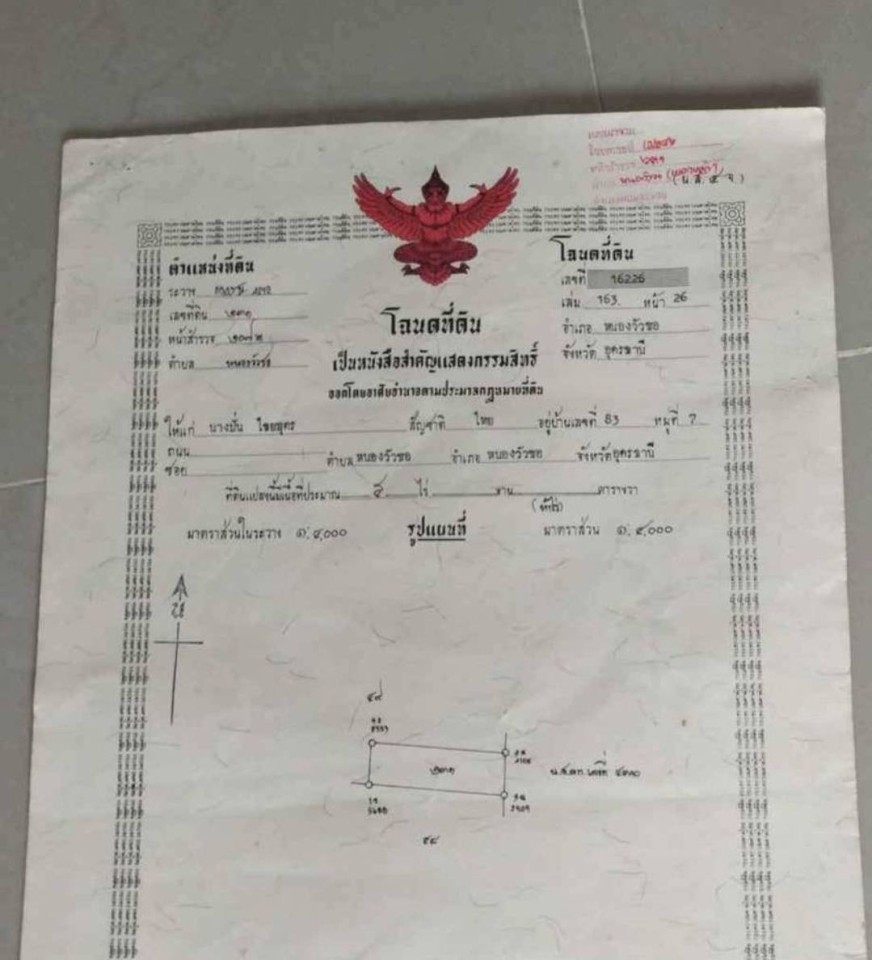 (น.ส. ๕ จ.)
ตำแหน่งที่ดิน
ระวาง
เลขที่ดิน ๒๓๑
หน้าสำรวจ ๒๐๗๒
ตำบล หนองวัวซอ
โฉนดที่ดิน
เลขที่ 16226
เล่ม 163 หน้า 26
อำเภอ หนองวัวซอ
จังหวัด อุดรธานี
โฉนดที่ดิน
เป็นหนังสือสำคัญแสดงกรรมสิทธิ์
ออกโดยอาศัยอำนาจตามประมวลกฎหมายที่ดิน
ให้แก่ นางปั่น ไชยบุตร สัญชาติ ไทย อยู่บ้านเลขที่ 83 หมู่ที่ 7
ถนน
ซอย ตำบล หนองวัวซอ อำเภอ หนองวัวซอ จังหวัด อุดรธานี
ที่ดินแปลงนี้มีเนื้อที่ประมาณ ๕ ไร่ งาน ตารางวา
(ห้าไร่)
มาตราส่วนในระวาง ๑:๔,๐๐๐ รูปแผนที่ มาตราส่วน ๑:๔,๐๐๐
น
๒๓๑
๕๘